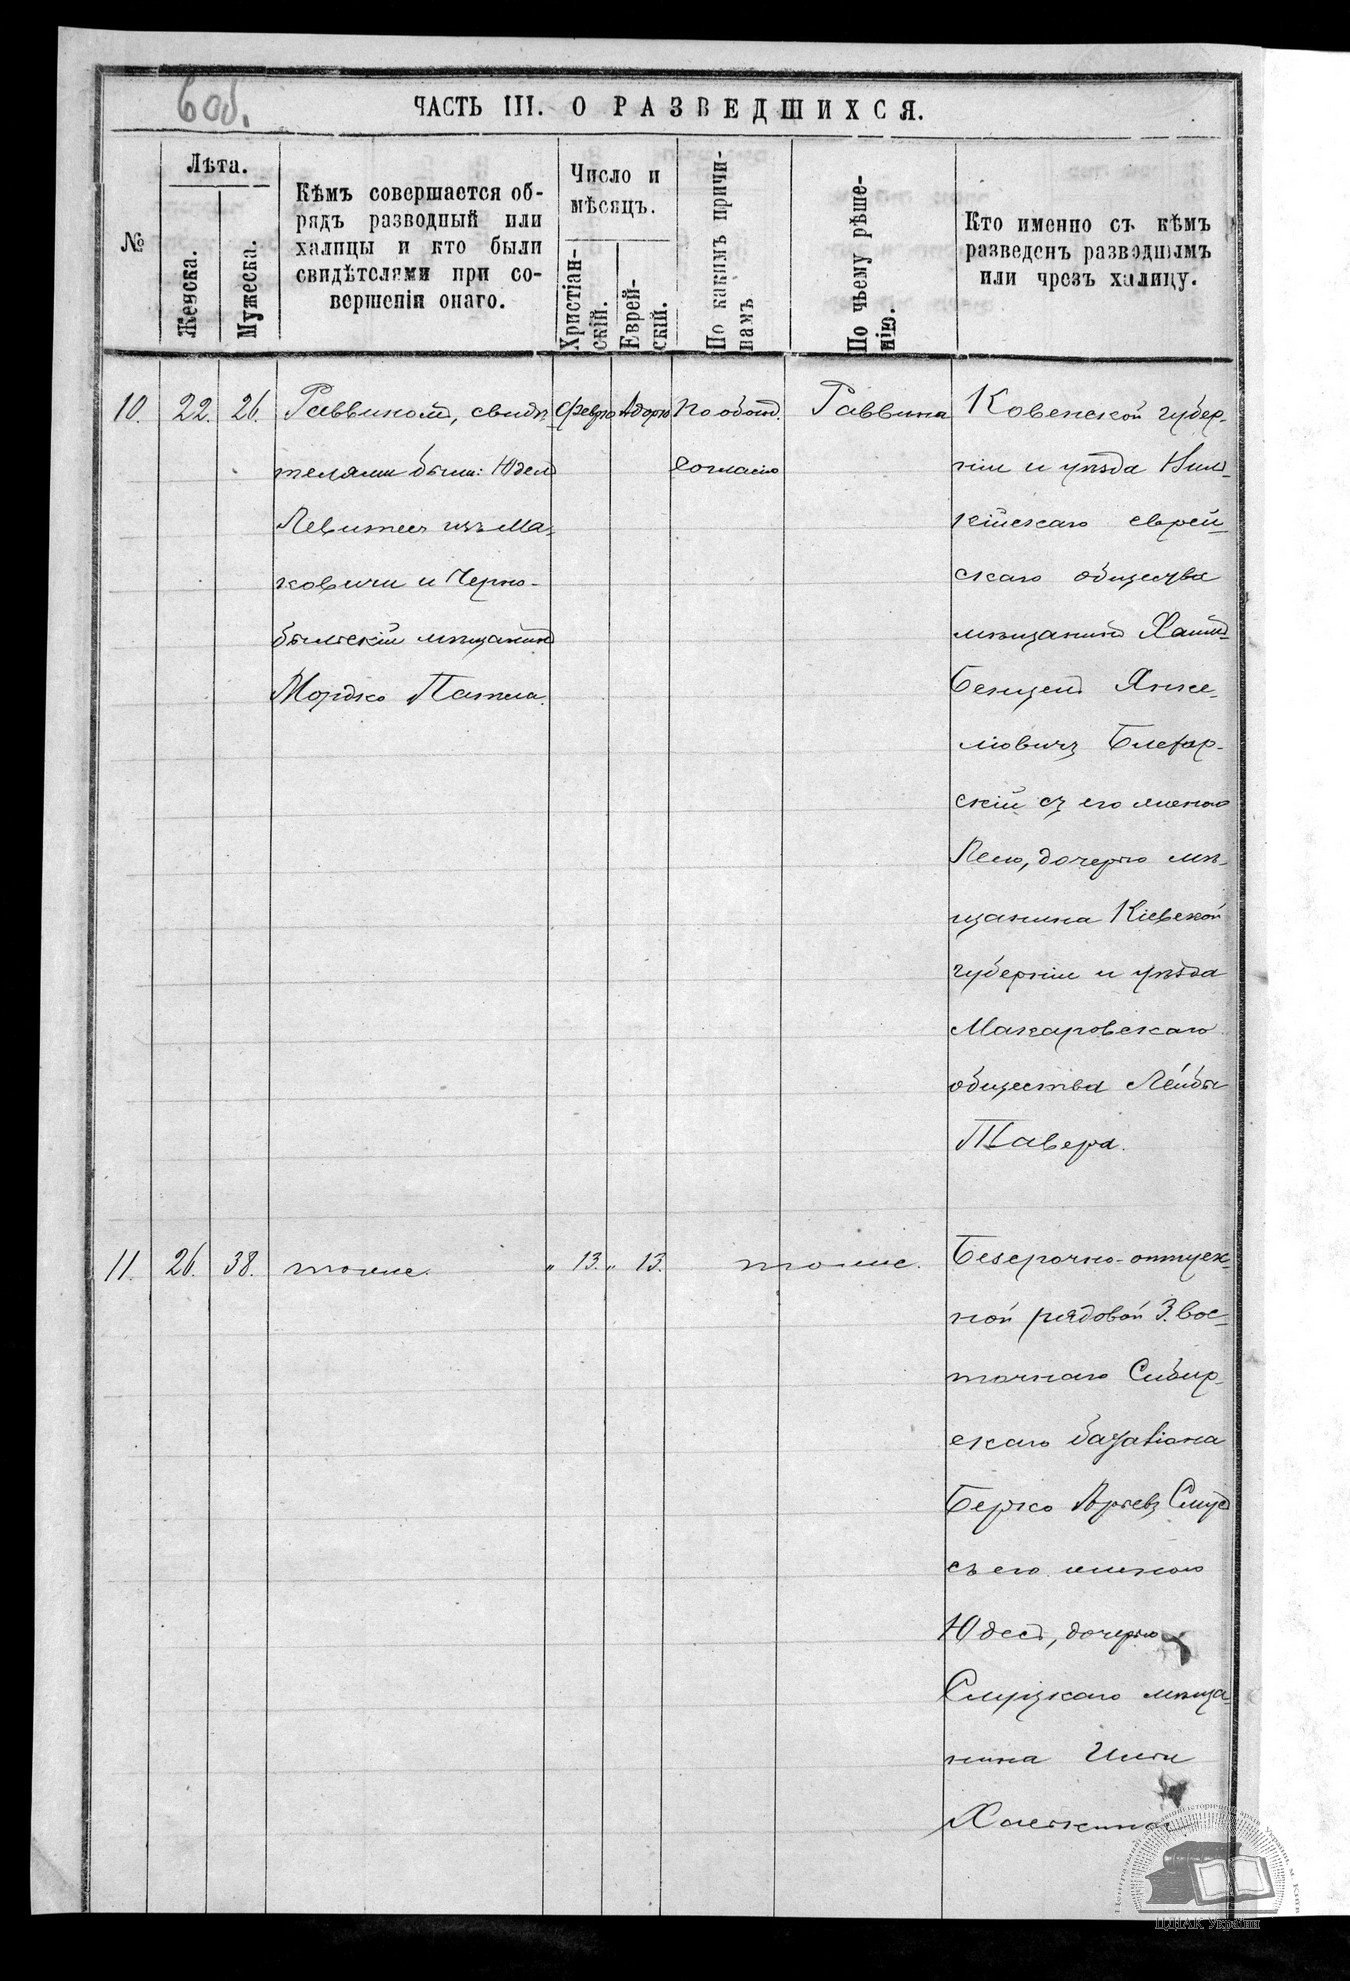 6 об.
ЧАСТЬ III. О РАЗВЕДШИХСЯ.
№
Лѣта.
Женска.
Мужеска.
Кѣмъ совершается об-
рядъ разводный или
халицы и кто были
свидѣтелями при со-
вершеніи онаго.
Число и
мѣсяцъ.
Христіан-
скій.
Еврей-
скій.
По какимъ причи-
намъ
По чьему рѣше-
нію.
Кто именно съ кѣмъ
разведенъ разводнымъ
или чрезъ халицу.
10. 22. 26. Раввиномъ, свидѣ-
телями были: Юдель
Левитес изъ Ма-
ковичи и Черно-
быльскій мѣщанинъ
Мордко
По обоюд.
согласію
Раввина
Ковенской губер-
ніи и уѣзда Виль-
кійскаго еврей-
скаго общества
мѣщанинъ Хаимъ-
Бенцень Янке-
левичъ
скій съ его женою
дочерью мѣ-
щанина Кіевской
губерніи и уѣзда
Макаровскаго
общества Лейбы
Тавера.
11. 26. 38. тоже. " 13. " 13. тоже.
Безсрочно-отпуск-
ной рядовой 3. Вос-
точнаго Сибир-
скаго баталіона
Берко Арьевъ
съ его женою
Юдесъ, дочерью
Слуцкаго мѣща-
нина
ЦДІАК України